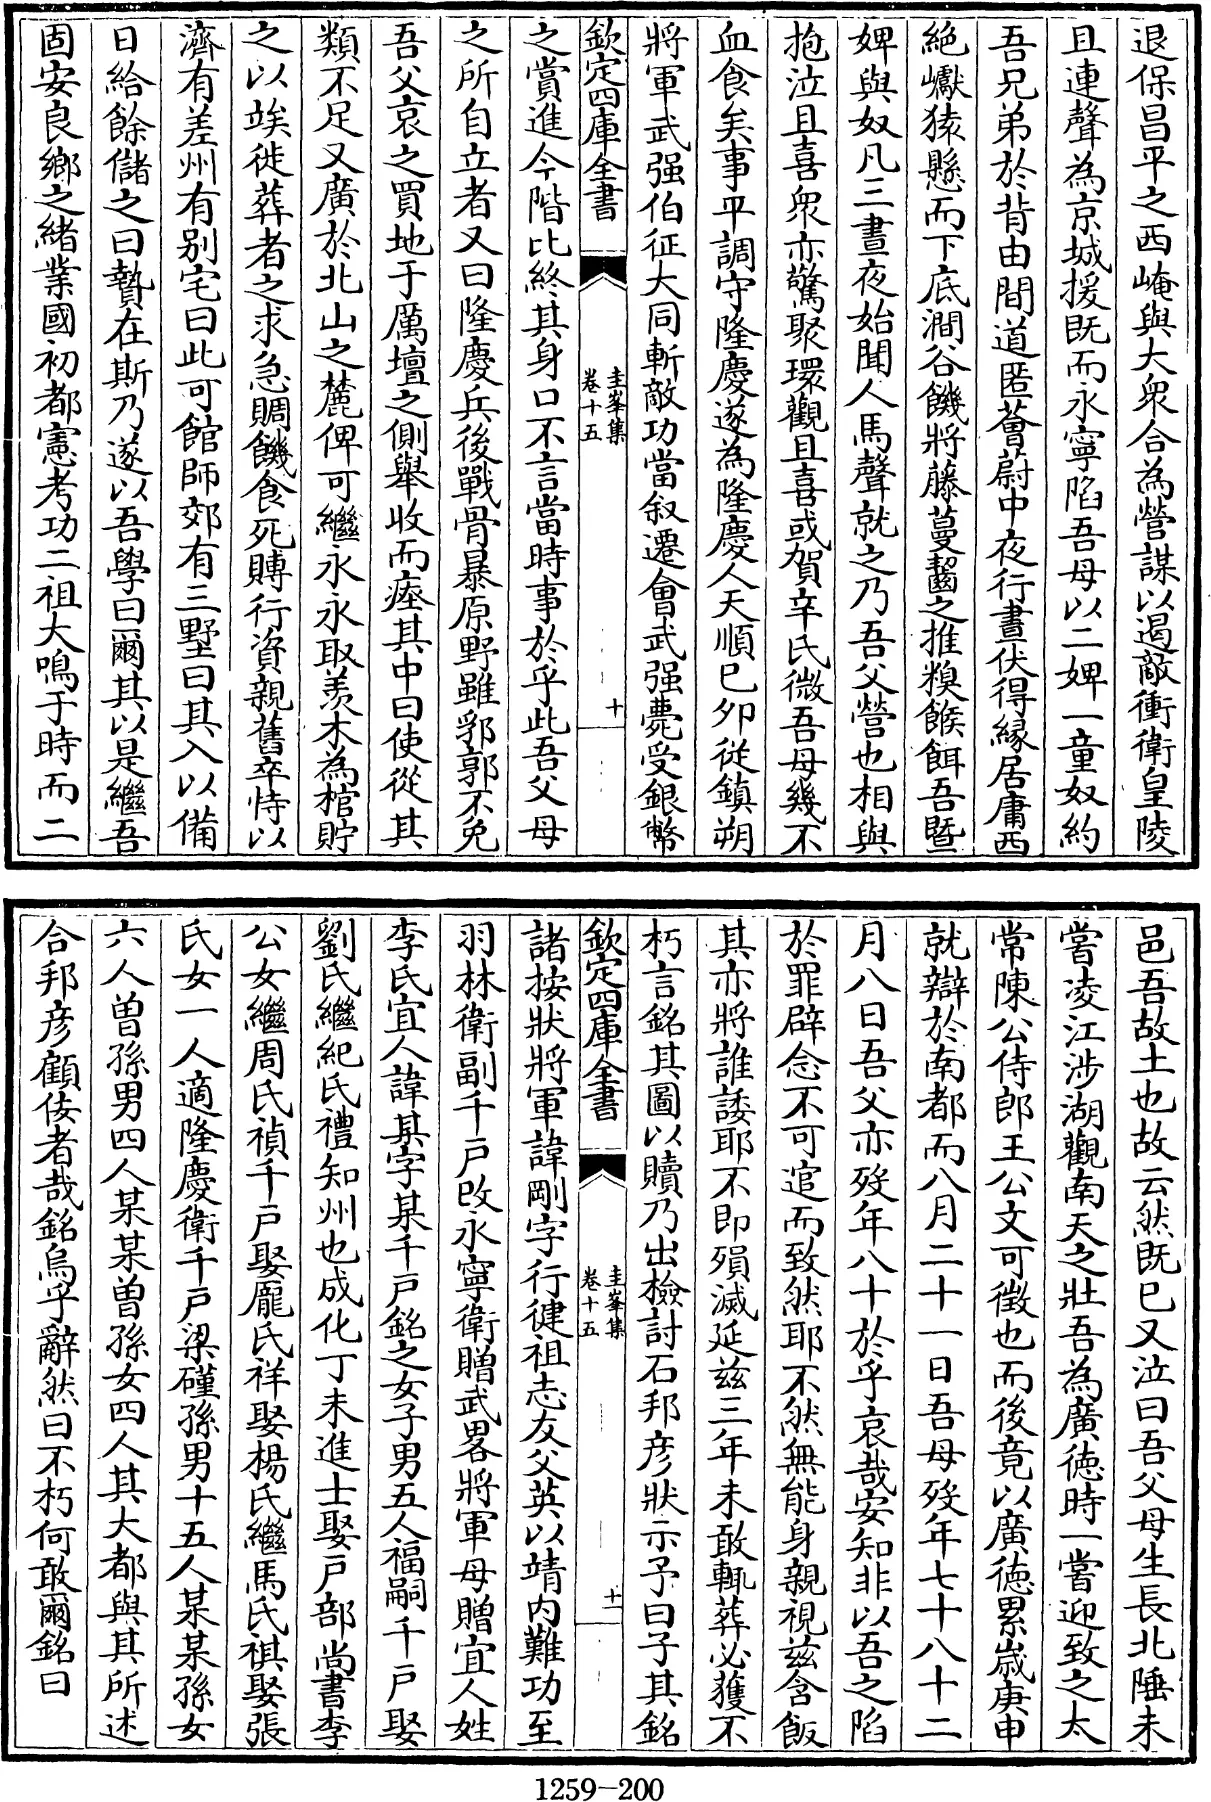 退保昌平之西崦與大衆合為營謀以遏敵衝衛皇陵
且連聲為京城援既而永寧陷吾母以二婢一童奴約
吾兄弟於背由間道匿薈蔚中夜行晝伏得緣居庸西
絶巘猿懸而下底澗谷饑將藤蔓齧之推糗餱餌吾暨
婢與奴凡三晝夜始聞人馬聲就之乃吾父營也相與
抱泣且喜衆亦驚聚環觀且喜或賀辛氏微吾母幾不
血食矣事平調守隆慶遂為隆慶人天順已夘從鎮朔
將軍武强伯征大同斬敵功當叙遷會武强薨受銀幣
欽定四庫全書
圭峯集
卷十五
十
之賞進今階比終其身口不言當時事於乎此吾父母
之所自立者又曰隆慶兵後戰骨暴原野雖郛郭不免
吾父哀之買地于厲壇之側舉收而瘞其中曰使從其
類不足又廣於北山之麓俾可繼永永取羨木為棺貯
之以竢徙葬者之求急賙饑食死賻行資親舊卒恃以
濟有差州有别宅曰此可館師郊有三墅曰其入以備
日給餘儲之曰贄在斯乃遂以吾學曰爾其以是繼吾
固安良鄉之緒業國初都憲考功二祖大鳴于時而二
邑吾故土也故云然既已又泣曰吾父母生長北陲未
嘗凌江涉湖觀南天之壯吾為廣徳時一嘗迎致之太
常陳公侍郎王公文可徵也而後竟以廣徳累嵗庚申
就辯於南都而八月二十一日吾母殁年七十八十二
月八日吾父亦殁年八十於乎哀哉安知非以吾之陷
於罪辟念不可逭而致然耶不然無能身親視兹含飯
其亦將誰諉耶不即殞滅延兹三年未敢輒葬必獲不
朽言銘其圖以贖乃出檢討石邦彦狀示予曰子其銘
欽定四庫全書
圭峯集
卷十五
十一
諸按狀將軍諱剛字行健祖志友父英以靖内難功至
羽林衛副千戸改永寧衛贈武畧將軍母贈宜人姓
李氏宜人諱某字某千戸銘之女子男五人福嗣千戸娶
劉氏繼紀氏禮知州也成化丁未進士娶戸部尚書李
公女繼周氏禎千戸娶龎氏祥娶楊氏繼馬氏祺娶張
氏女一人適隆慶衛千戸梁磓孫男十五人某某孫女
六人曽孫男四人某某曽孫女四人其大都與其所述
合邦彦顧佞者哉銘烏乎辭然曰不朽何敢爾銘曰
1259-200